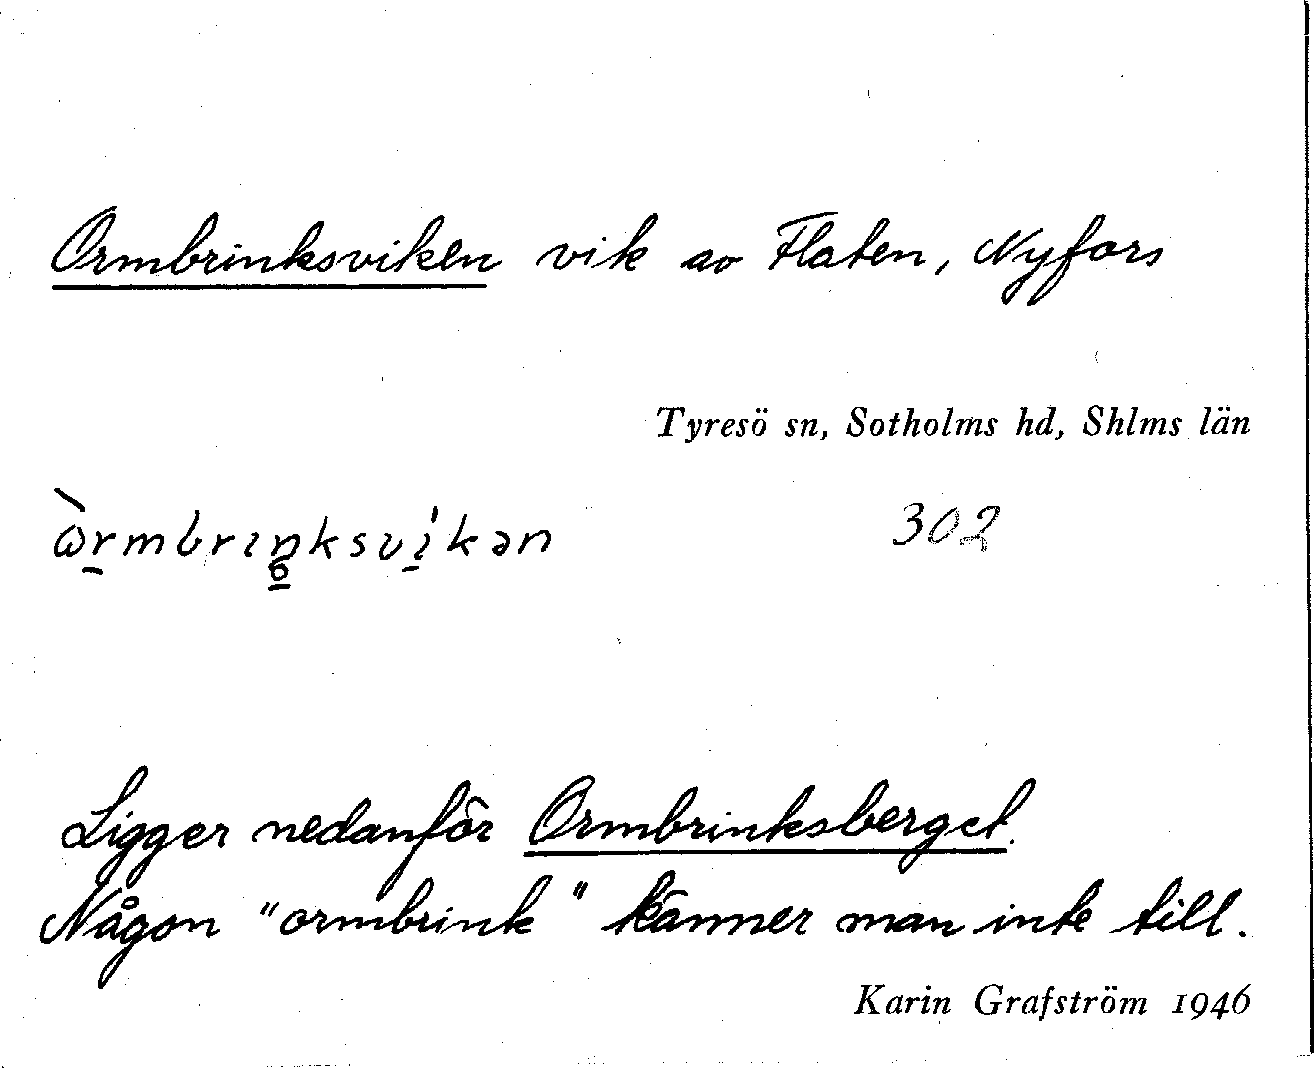 Ormbrinksviken vik av Flaten, Nyfors
Tyresö sn, Sotholms hd, Shlms län
ὼrmbrıŋksvi̍kən 302
Ligger nedanför Ormbrinksberget.
Någon "ormbrink" känner man inte till.
Karin Grafström 1946